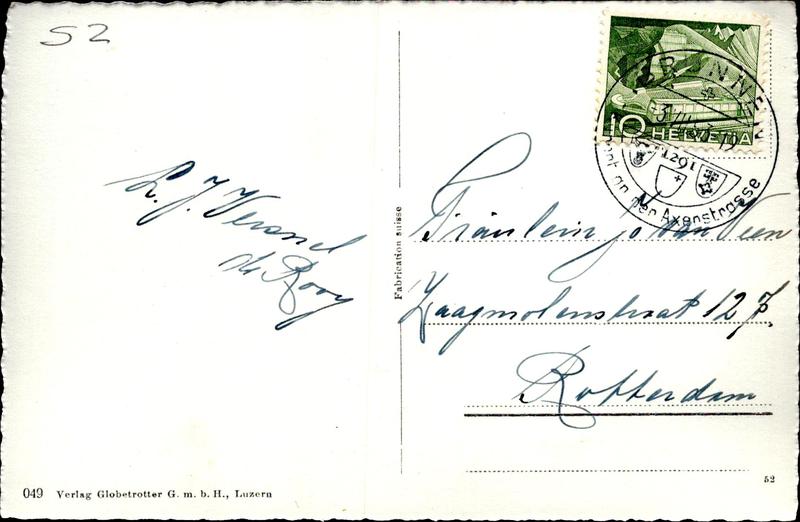 52
10 HELVETIA
BRUNNEN
1291
an der Axenstrasse
L. J. Wessel
de Rooy
Fabrication suisse
Fräulein Jo van Veen
Zaagmolenstraat 127
Rotterdam
049 Verlag Globetrotter G. m. b. H., Luzern
52